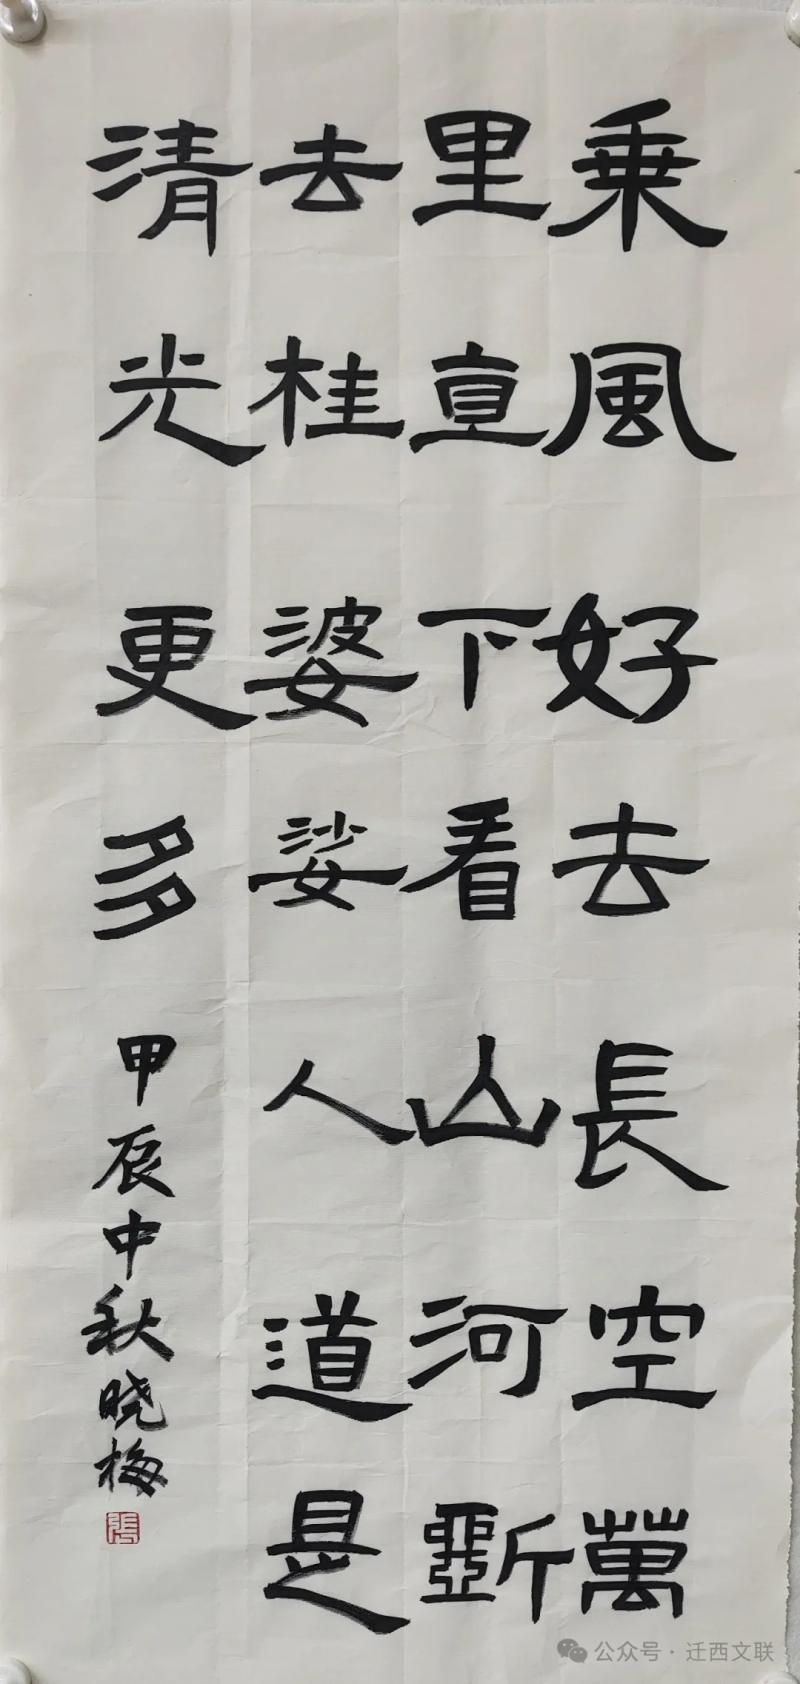 乗風好去長空萬
里直下看山河斵
去桂婆娑人道是
清光更多
甲辰中秋晓梅
張
公众号·迁西文联